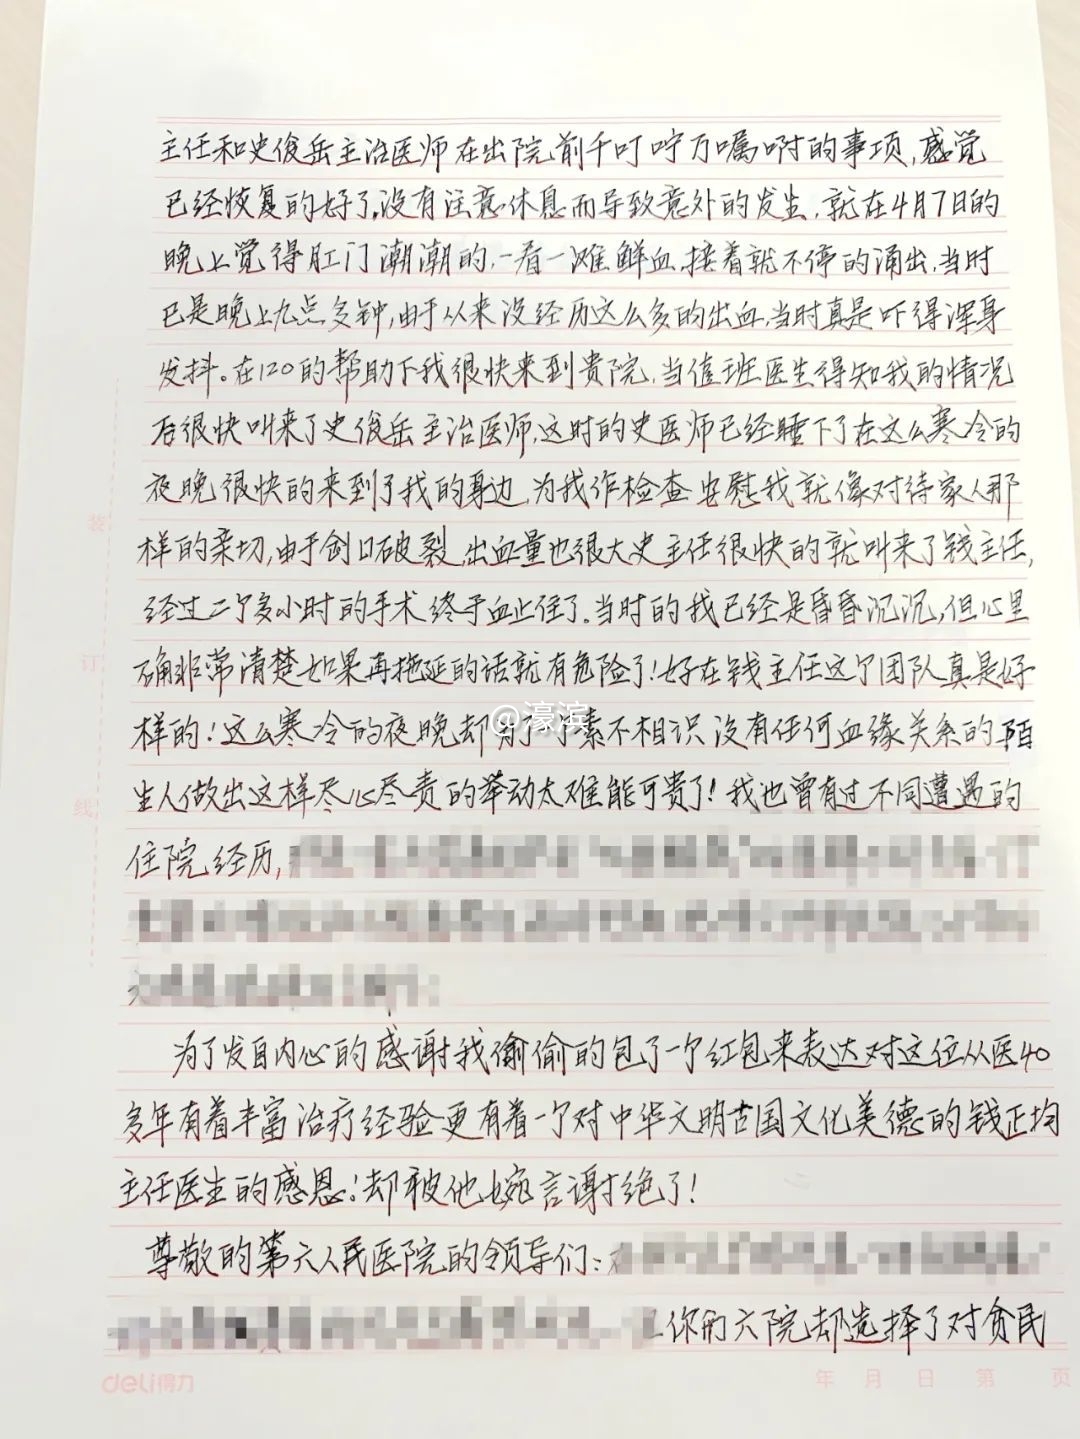 主任和史俊岳主治医师在出院前千叮咛万嘱咐的事项,感觉
已经恢复的好了,没有注意休息而导致意外的发生,就在4月7日的
晚上觉得肛门潮潮的,一看一滩鲜血,接着就不停的涌出,当时
已是晚上九点多钟,由于从来没经历这么多的出血,当时真是吓得浑身
发抖。在120的帮助下我很快来到贵院,当值班医生得知我的情况
后很快叫来了史俊岳主治医师,这时的史医师已经睡下了在这么寒冷的
夜晚很快的来到了我的身边,为我作检查安慰我就像对待家人那
样的亲切,由于创口破裂,出血量也很大史主任很快的就叫来了钱主任,
经过二个多小时的手术终于血止住了。当时的我已经是昏昏沉沉,但心里
确非常清楚如果再拖延的话就有危险了!好在钱主任这个团队真是好
样的!这么寒冷的夜晚却为了素不相识没有任何血缘关系的陌
生人做出这样尽心尽责的举动太难能可贵了!我也曾有过不同遭遇的
住院经历,
为了发自内心的感谢我偷偷的包了一个红包来表达对这位从医40
多年有着丰富治疗经验更有着一个对中华文明古国文化美德的钱正均
主任医生的感恩!却被他婉言谢绝了!
尊敬的第六人民医院的领导们:
你们六院却选择了对贫民
装
订
线
@濠滨
deli得力
年 月 日 第 页